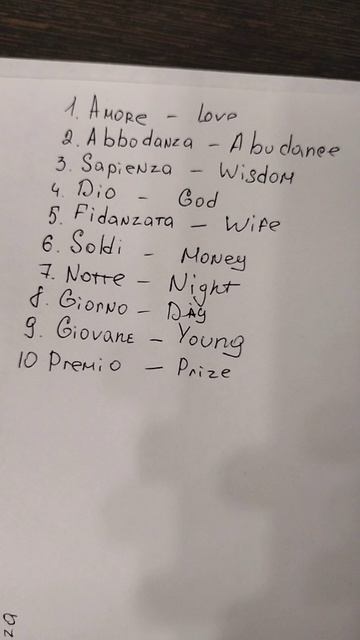 1. Amore - Love
2. Abbodanza - Abudanee
3. Sapienza - Wisdom
4. Dio - God
5. Fidanzata - Wife
6. Soldi - Money
7. Notte - Night
8. Giorno - Day
9. Giovane - Young
10 Premio - Prize